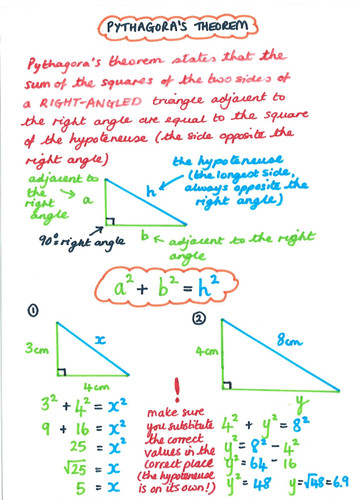 PYTHAGORA'S THEOREM
Pythagora's theorem states that the
sum of the squares of the two sides of
a RIGHT-ANGLED triangle adjacent to
the right angle are equal to the square
of the hypoteneuse (the side opposite the
right angle)
adjacent to
the
right
angle
a
h
b
the hypoteneuse
(the longest side,
always opposite the
right angle)
90°=right angle
adjacent to the right
angle
a² + b² = h²
①
3cm
x
4cm
3² + 4² = x²
9 + 16 = x²
25 = x²
√25 = x
5 = x
!
make sure
you substitute
the correct
values in the
correct place
(the hypoteneuse
is on its own!)
②
4cm
8cm
y
4² + y² = 8²
y² = 8² - 4²
y² = 64 - 16
y² = 48 y=√48=6.9